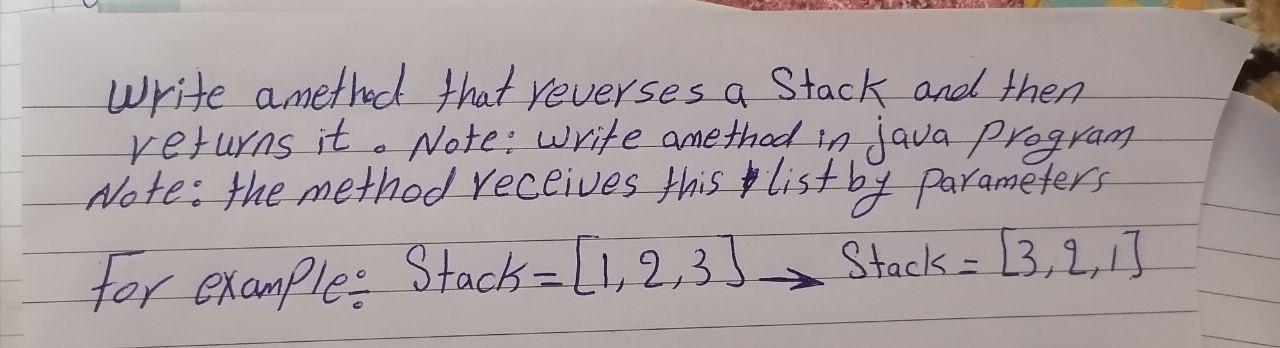 Write amethod that reverses a Stack and then
returns it. Note: write amethod in java program
Note: the method receives this list by parameters
For example: Stack = [1,2,3] → Stack = [3,2,1]